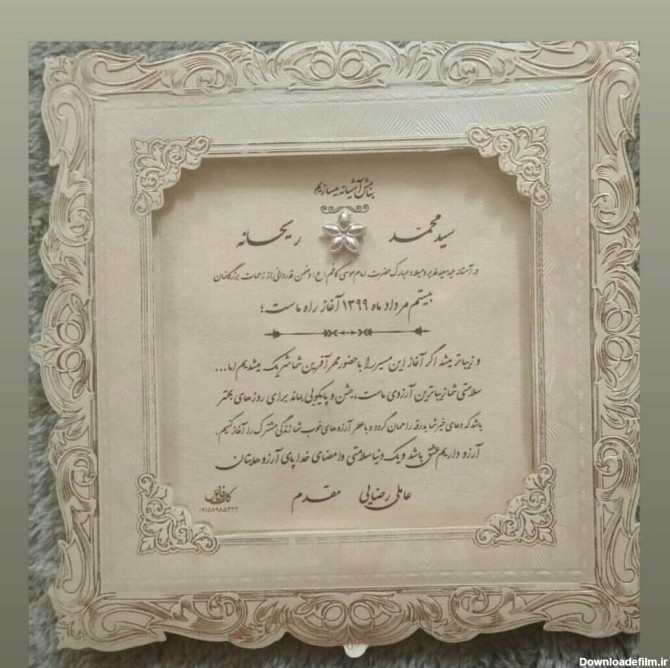 بنامش آشیانه میسازیم
سید محمد ریحانه
در آستانه عید سعید غدیر و میلاد مبارک حضرت امام موسی کاظم (ع) و ضمن قدردانی از زحمات بزرگانمان
بیستم مرداد ماه ۱۳۹۹ آغاز راه ماست؛
و زیباتر میشد اگر آغاز این مسیر را با حضور مهرآفرین شما شریک میشدیم اما...
سلامتی شما زیباترین آرزوی ماست، جشن و پایکوبی بماند برای روزهای بهتر
باشد که دعای خیر شما بدرقه راهمان گردد و با عطر آرزوهای خوب شما زندگی مشترک را آغاز کنیم.
آرزو داریم عشق باشد و یک دنیا سلامتی و امضای خدا پای آرزوهایتان
عاملی رضایی مقدم
Downloadefilm.ir